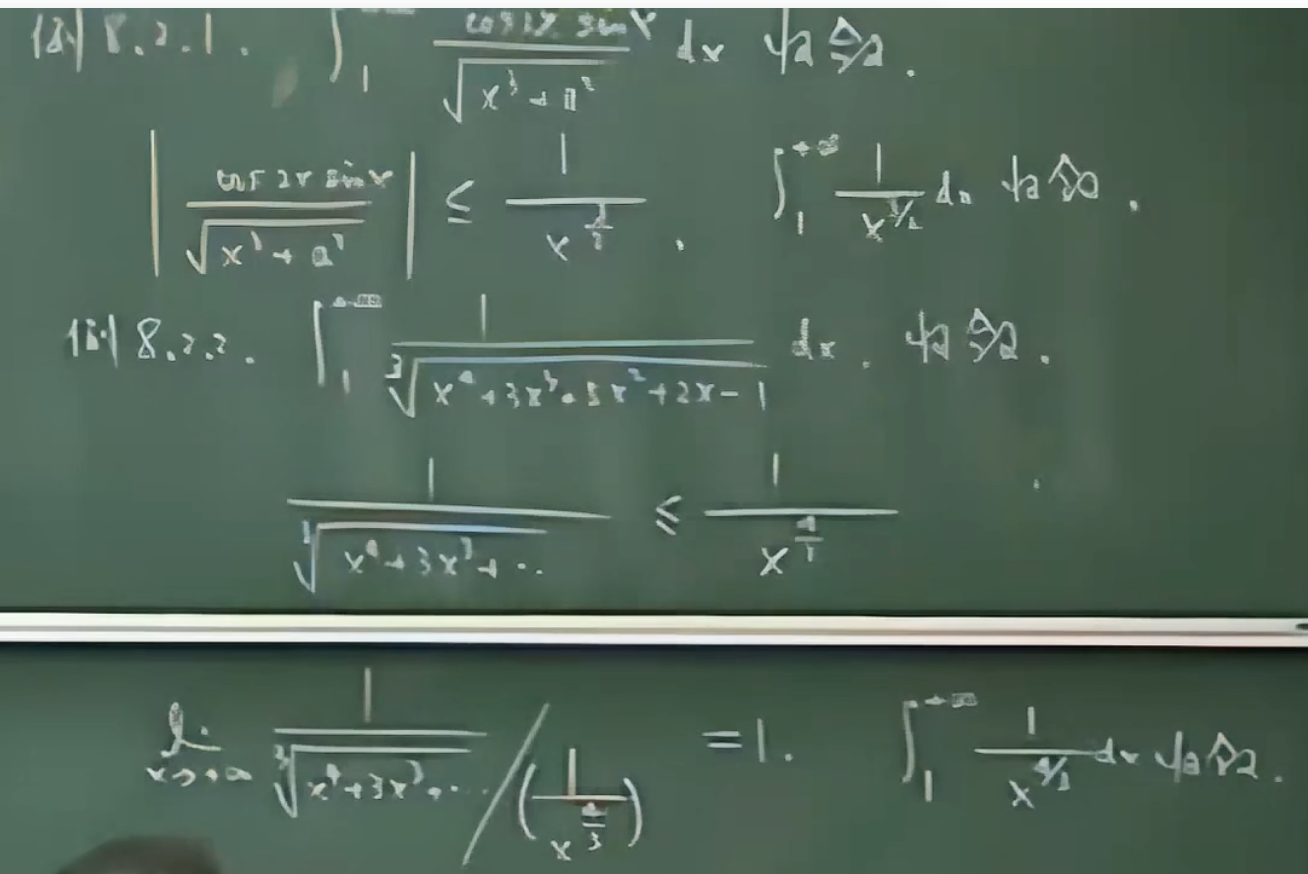 例 8.2.1. ∫_1^{+∞} \frac{cos 2x sin x}{\sqrt{x^3+a^2}} dx 收敛.
|\frac{cos 2x sin x}{\sqrt{x^3+a^2}}| ≤ \frac{1}{x^{\frac{3}{2}}}. ∫_1^{+∞} \frac{1}{x^{3/2}} dx 收敛.
例 8.2.2. ∫_1^{+∞} \frac{1}{\sqrt[3]{x^4+3x^3+5x^2+2x-1}} dx. 收敛.
\frac{1}{\sqrt[3]{x^4+3x^3+…}} ≤ \frac{1}{x^{\frac{4}{3}}}
lim_{x→+∞} \frac{1}{\sqrt[3]{x^4+3x^3+…}} / (\frac{1}{x^{\frac{4}{3}}}) = 1. ∫_1^{+∞} \frac{1}{x^{4/3}} dx 收敛.